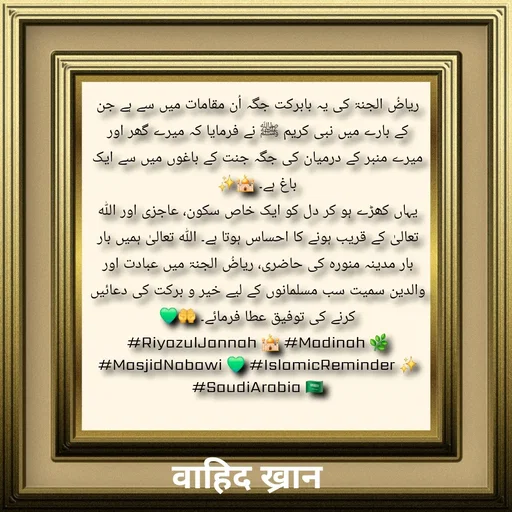 ریاضُ الجنۃ کی یہ بابرکت جگہ اُن مقامات میں سے ہے جن
کے بارے میں نبی کریم ﷺ نے فرمایا کہ میرے گھر اور
میرے منبر کے درمیان کی جگہ جنت کے باغوں میں سے ایک
باغ ہے۔ 🕌✨
یہاں کھڑے ہو کر دل کو ایک خاص سکون، عاجزی اور اللہ
تعالیٰ کے قریب ہونے کا احساس ہوتا ہے۔ اللہ تعالیٰ ہمیں بار
بار مدینہ منورہ کی حاضری، ریاضُ الجنۃ میں عبادت اور
والدین سمیت سب مسلمانوں کے لیے خیر و برکت کی دعائیں
کرنے کی توفیق عطا فرمائے۔ 🤲💚
#RiyazulJannah 🕌 #Madinah 🌿
#MasjidNabawi 💚 #IslamicReminder ✨
#SaudiArabia 🇸🇦
वाहिद ख़ान